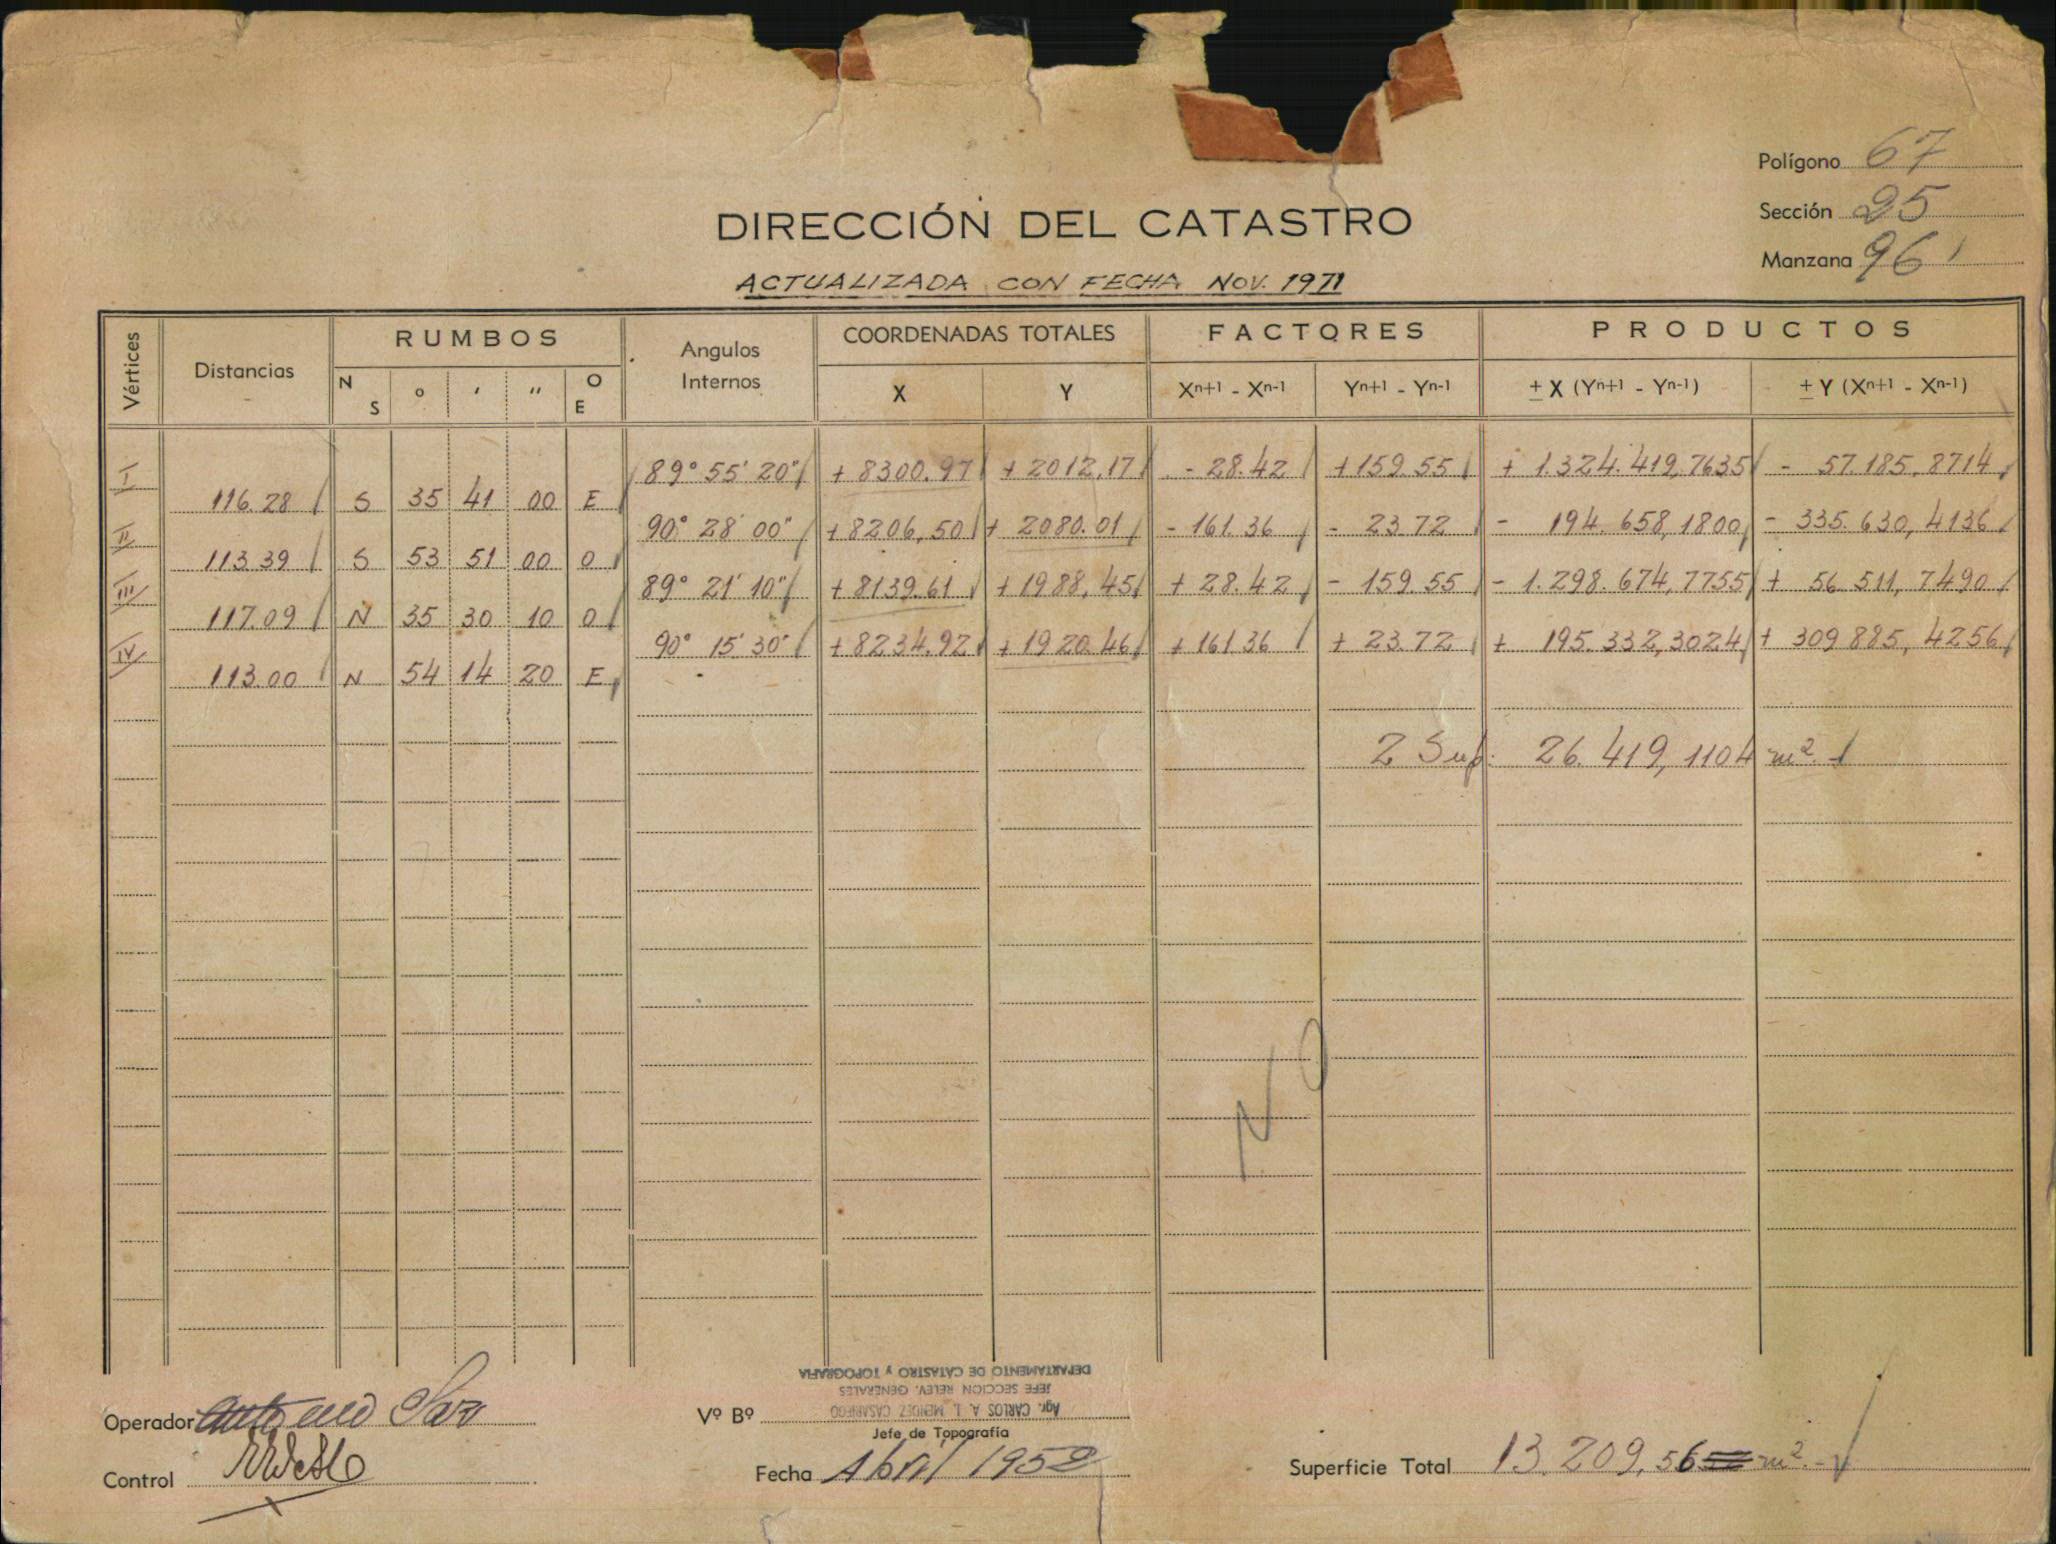 Polígono 67
Sección 25
Manzana 961
DIRECCIÓN DEL CATASTRO
ACTUALIZADA CON FECHA NOV. 1971
Vértices Distancias RUMBOS Angulos Internos COORDENADAS TOTALES FACTORES PRODUCTOS
N S ° ' " O E X Y Xn+1 - Xn-1 Yn+1 - Yn-1 ± X (Yn+1 - Yn-1) ± Y (Xn+1 - Xn-1)
I 89° 55' 20" + 8300.97 + 2012,17 - 28.42 + 159.55 + 1.324.419,7635 - 57.185,8714
116.28 S 35 41 00 E
II 90° 28' 00" + 8206,50 + 2080.01 - 161.36 - 23.72 - 194.658,1800 - 335.630,4136
113.39 S 53 51 00 O
III 89° 21' 10" + 8139.61 + 1988,45 + 28.42 - 159.55 - 1.298.674,7755 + 56.511,7490
117.09 N 35 30 10 O
IV 90° 15' 30" + 8234.92 + 1920.46 + 161.36 + 23.72 + 195.332,3024 + 309885,4256
113.00 N 54 14 20 E
2 Sup: 26.419,1104 m².
NO
DEPARTAMENTO DE CATASTRO y TOPOGRAFIA
JEFE SECCION RELEV. GENERALES
Agr. CARLOS A. L. MENDEZ CASARIEGO
Operador
Vº Bº
Jefe de Topografía
Control
Fecha Abril 1952
Superficie Total 13.209,56 m².